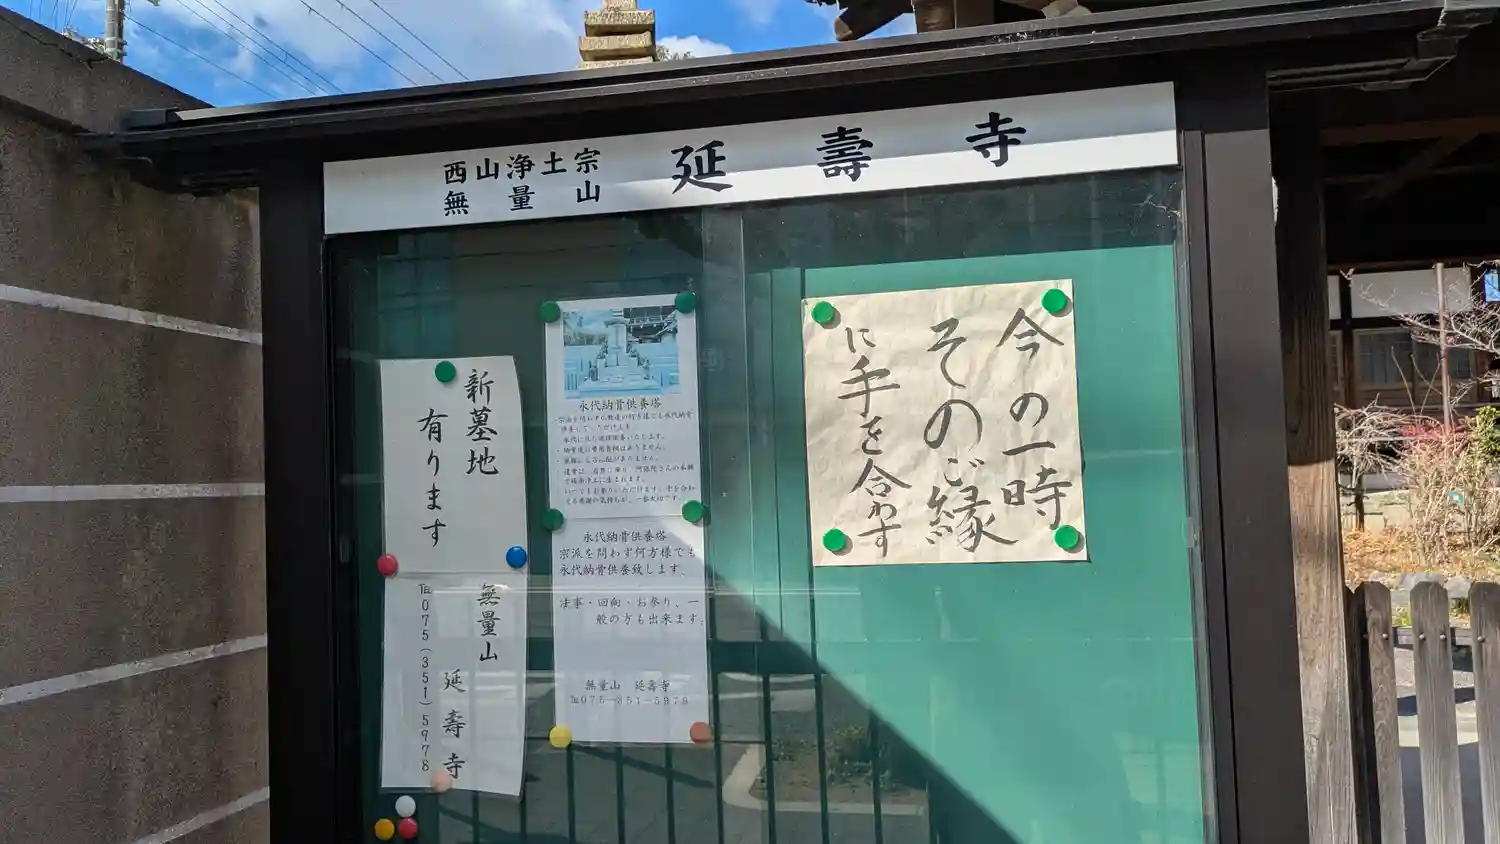 西山浄土宗
無量山
延壽寺
今の一時
そのご縁
に手を合わす
永代納骨供養塔
永代納骨供養塔
宗派を問わず何方様でも
永代納骨供養致します。
法事・回向・お参り、一
般の方も出来ます。
無量山 延壽寺
℡075-351-5978
新墓地
有ります
無量山
延壽寺
℡075(351)5978